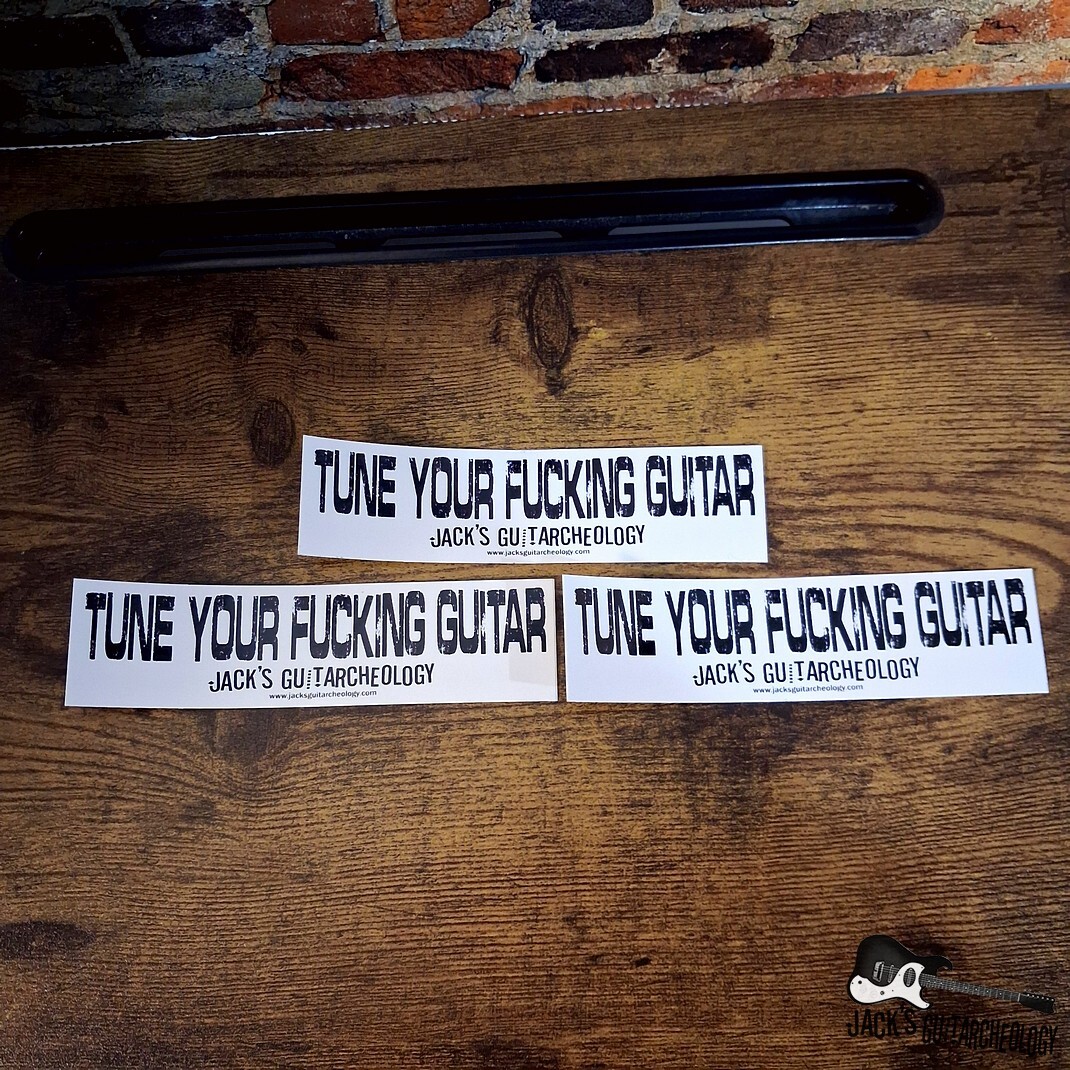 TUNE YOUR FUCKING GUITAR
JACK'S GUITARCHEOLOGY
www.jacksguitarcheology.com
TUNE YOUR FUCKING GUITAR
JACK'S GUITARCHEOLOGY
www.jacksguitarcheology.com
TUNE YOUR FUCKING GUITAR
JACK'S GUITARCHEOLOGY
www.jacksguitarcheology.com
JACK'S GUITARCHEOLOGY